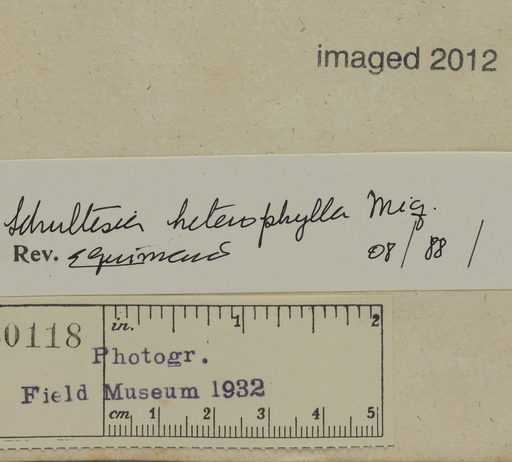 imaged 2012
Schultesia heterophylla Miq.
Rev. E Guimarães 08/88/
in. 1 2
0118
Photogr.
Field Museum 1932
cm 1 2 3 4 5